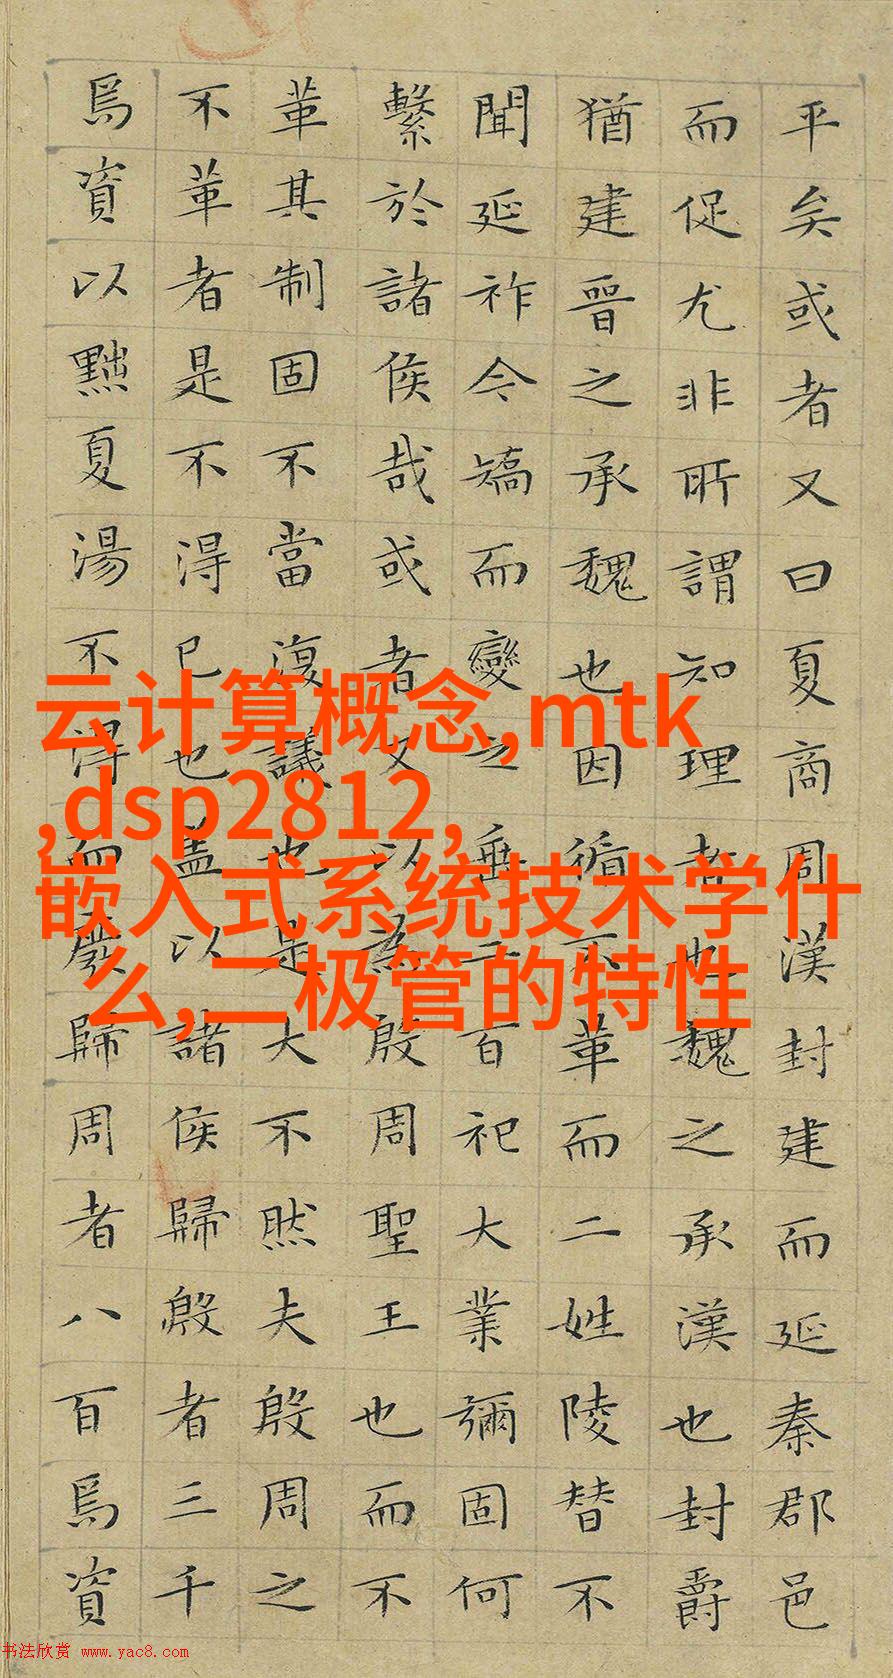 平矣或者又曰夏商周漢封建而延秦郡邑
而促尤非所謂知理者也魏之承漢也封爵
猶建晉之承魏也因循不革而二姓陵替不
聞延祚今矯而變之垂二百祀大業彌固何
繫於諸侯哉或者又以為殷周聖王也而不
革其制固不當復議也是大不然夫殷周之
不革者是不得已也蓋以諸侯歸殷者三千
焉資以黜夏湯不得而廢歸周者八百焉資
云计算概念,mtk
,dsp2812,
嵌入式系统技术学什
么,二极管的特性
书法欣赏 www.yac8.com